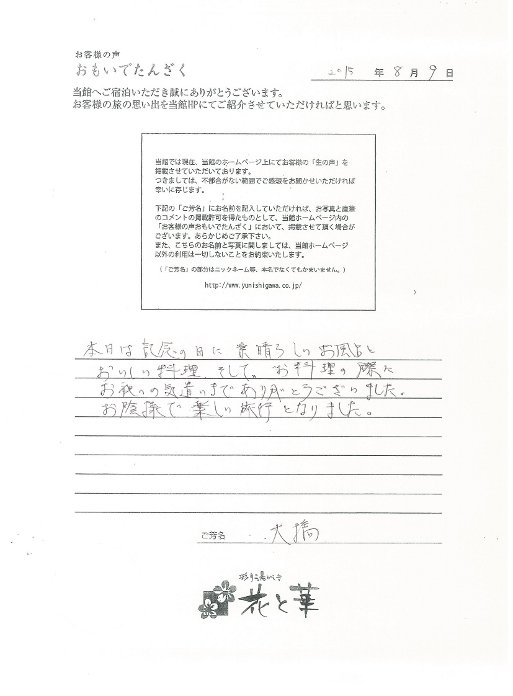 お客様の声
おもいでたんざく
2015 年 8 月 9 日
当館へご宿泊いただき誠にありがとうございます。
お客様の旅の思い出を当館HPにてご紹介させていただければと思います。
当館では現在、当館のホームページ上にてお客様の「生の声」を
掲載させていただいております。
つきましては、不都合がない範囲でご感想をお聞かせいただければ
幸いに存じます。
下記の「ご芳名」にお名前を記入していただければ、お写真と直筆
のコメントの掲載許可を得たものとして、当館ホームページ内の
「お客様の声おもいでたんざく」において、掲載させて頂く場合が
ございます。あらかじめご了承下さい。
また、こちらのお名前と写真に関しましては、当館ホームページ
以外の利用は一切しないことをお約束いたします。
(「ご芳名」の部分はニックネーム等、本名でなくてもかまいません。)
http://www.yunishigawa.co.jp/
本日は記念の日に素晴らしいお風呂と
おいしい料理 そして。お料理の際に
お祝いの気遣いまでありがとうございました。
お陰様で楽しい旅行となりました。
ご芳名 大橋
彩り湯かしき
花と華